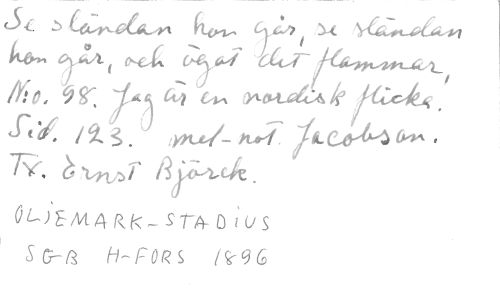 Se sländan hon går, se sländan
hon går, och ögat det flammar,
N:o. 98. Jag är en nordisk flicka.
Sid. 123. mel-not. Jacobson.
Tx. Ernst Björck.
OLJEMARK-STADIUS
SGB H-FORS 1896